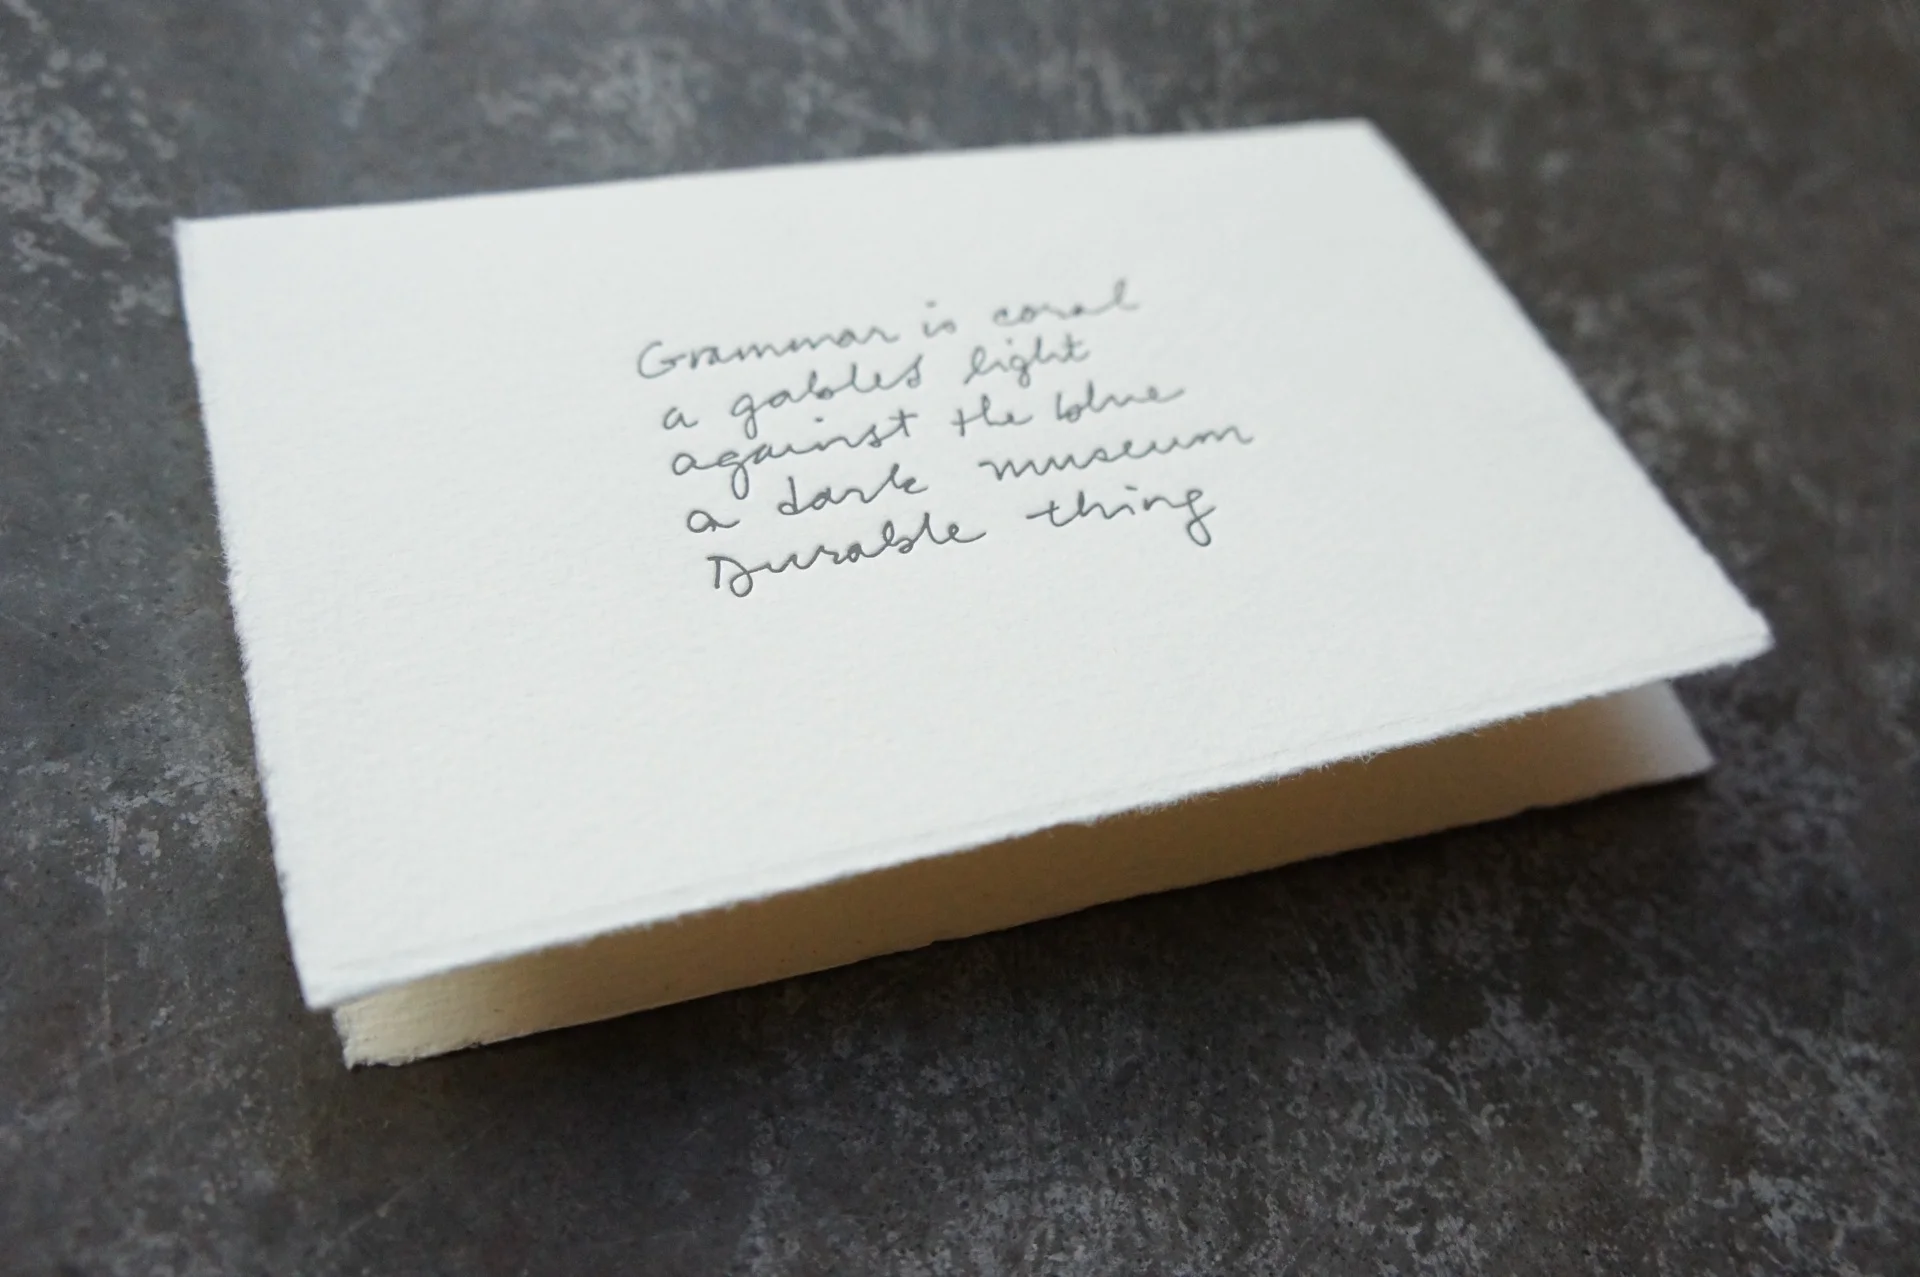 Grammar is coral
a gabled light
against the blue
a dark museum
Durable thing